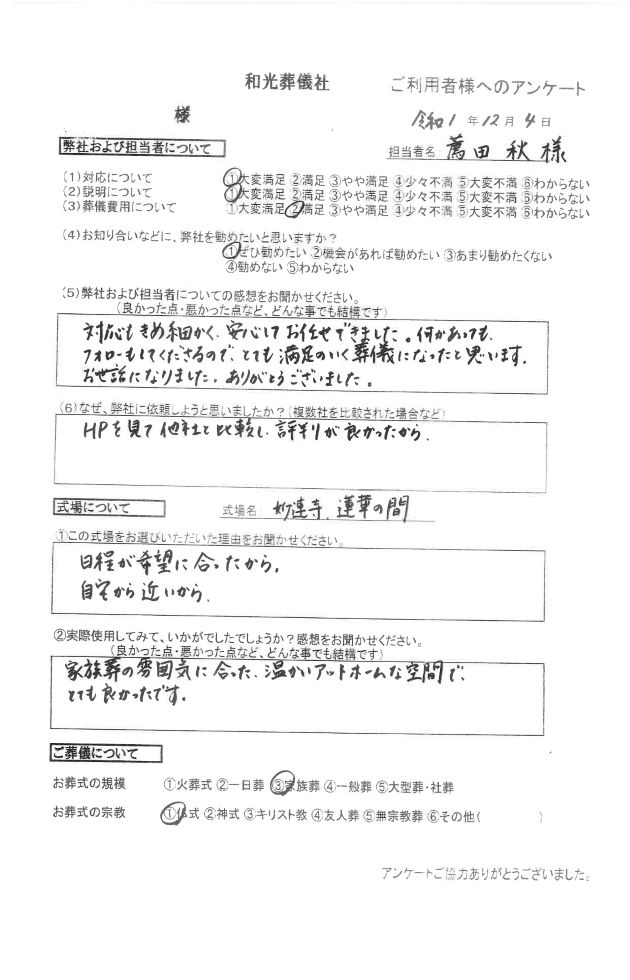 和光葬儀社 ご利用者様へのアンケート
様 令和1年12月4日
弊社および担当者について 担当者名 薦田 秋 様
(1)対応について ①大変満足 ②満足 ③やや満足 ④少々不満 ⑤大変不満 ⑥わからない
(2)説明について ①大変満足 ②満足 ③やや満足 ④少々不満 ⑤大変不満 ⑥わからない
(3)葬儀費用について ①大変満足 ②満足 ③やや満足 ④少々不満 ⑤大変不満 ⑥わからない
(4)お知り合いなどに、弊社を勧めたいと思いますか?
①ぜひ勧めたい ②機会があれば勧めたい ③あまり勧めたくない
④勧めない ⑤わからない
(5)弊社および担当者についての感想をお聞かせください。
(良かった点・悪かった点など、どんな事でも結構です)
対応もきめ細かく、安心してお任せできました。何かあっても、
フォローもしてくださるので、とても満足のいく葬儀になったと思います。
お世話になりました。ありがとうございました。
(6)なぜ、弊社に依頼しようと思いましたか?(複数社を比較された場合など)
HPを見て他社と比較し、評判が良かったから。
式場について 式場名 妙蓮寺、蓮華の間
①この式場をお選びいただいた理由をお聞かせください。
日程が希望に合ったから。
自宅から近いから。
②実際使用してみて、いかがでしたでしょうか?感想をお聞かせください。
(良かった点・悪かった点など、どんな事でも結構です)
家族葬の雰囲気に合った、温かいアットホームな空間で、
とても良かったです。
ご葬儀について
お葬式の規模 ①火葬式 ②一日葬 ③家族葬 ④一般葬 ⑤大型葬・社葬
お葬式の宗教 ①仏式 ②神式 ③キリスト教 ④友人葬 ⑤無宗教葬 ⑥その他( )
アンケートご協力ありがとうございました。